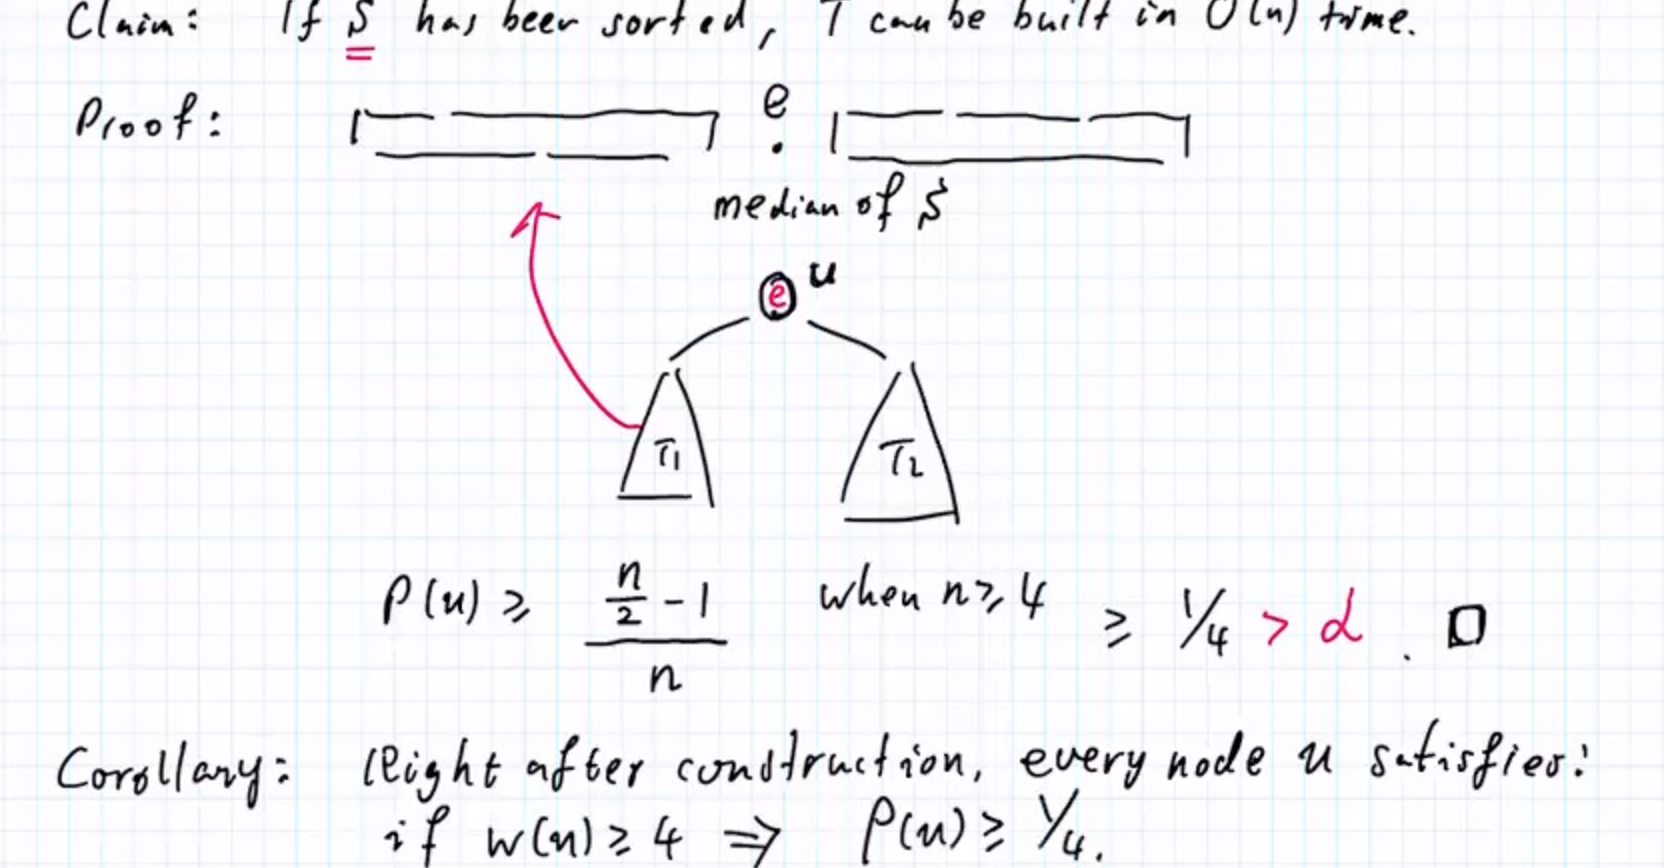 Claim: If S has been sorted, T can be built in O(n) time.
Proof:
e
median of S
e u
T1 T2
ρ(u) ≥ (n/2 - 1)/n when n ≥ 4 ≥ 1/4 > α. □
Corollary: Right after construction, every node u satisfies:
if w(u) ≥ 4 ⇒ ρ(u) ≥ 1/4.